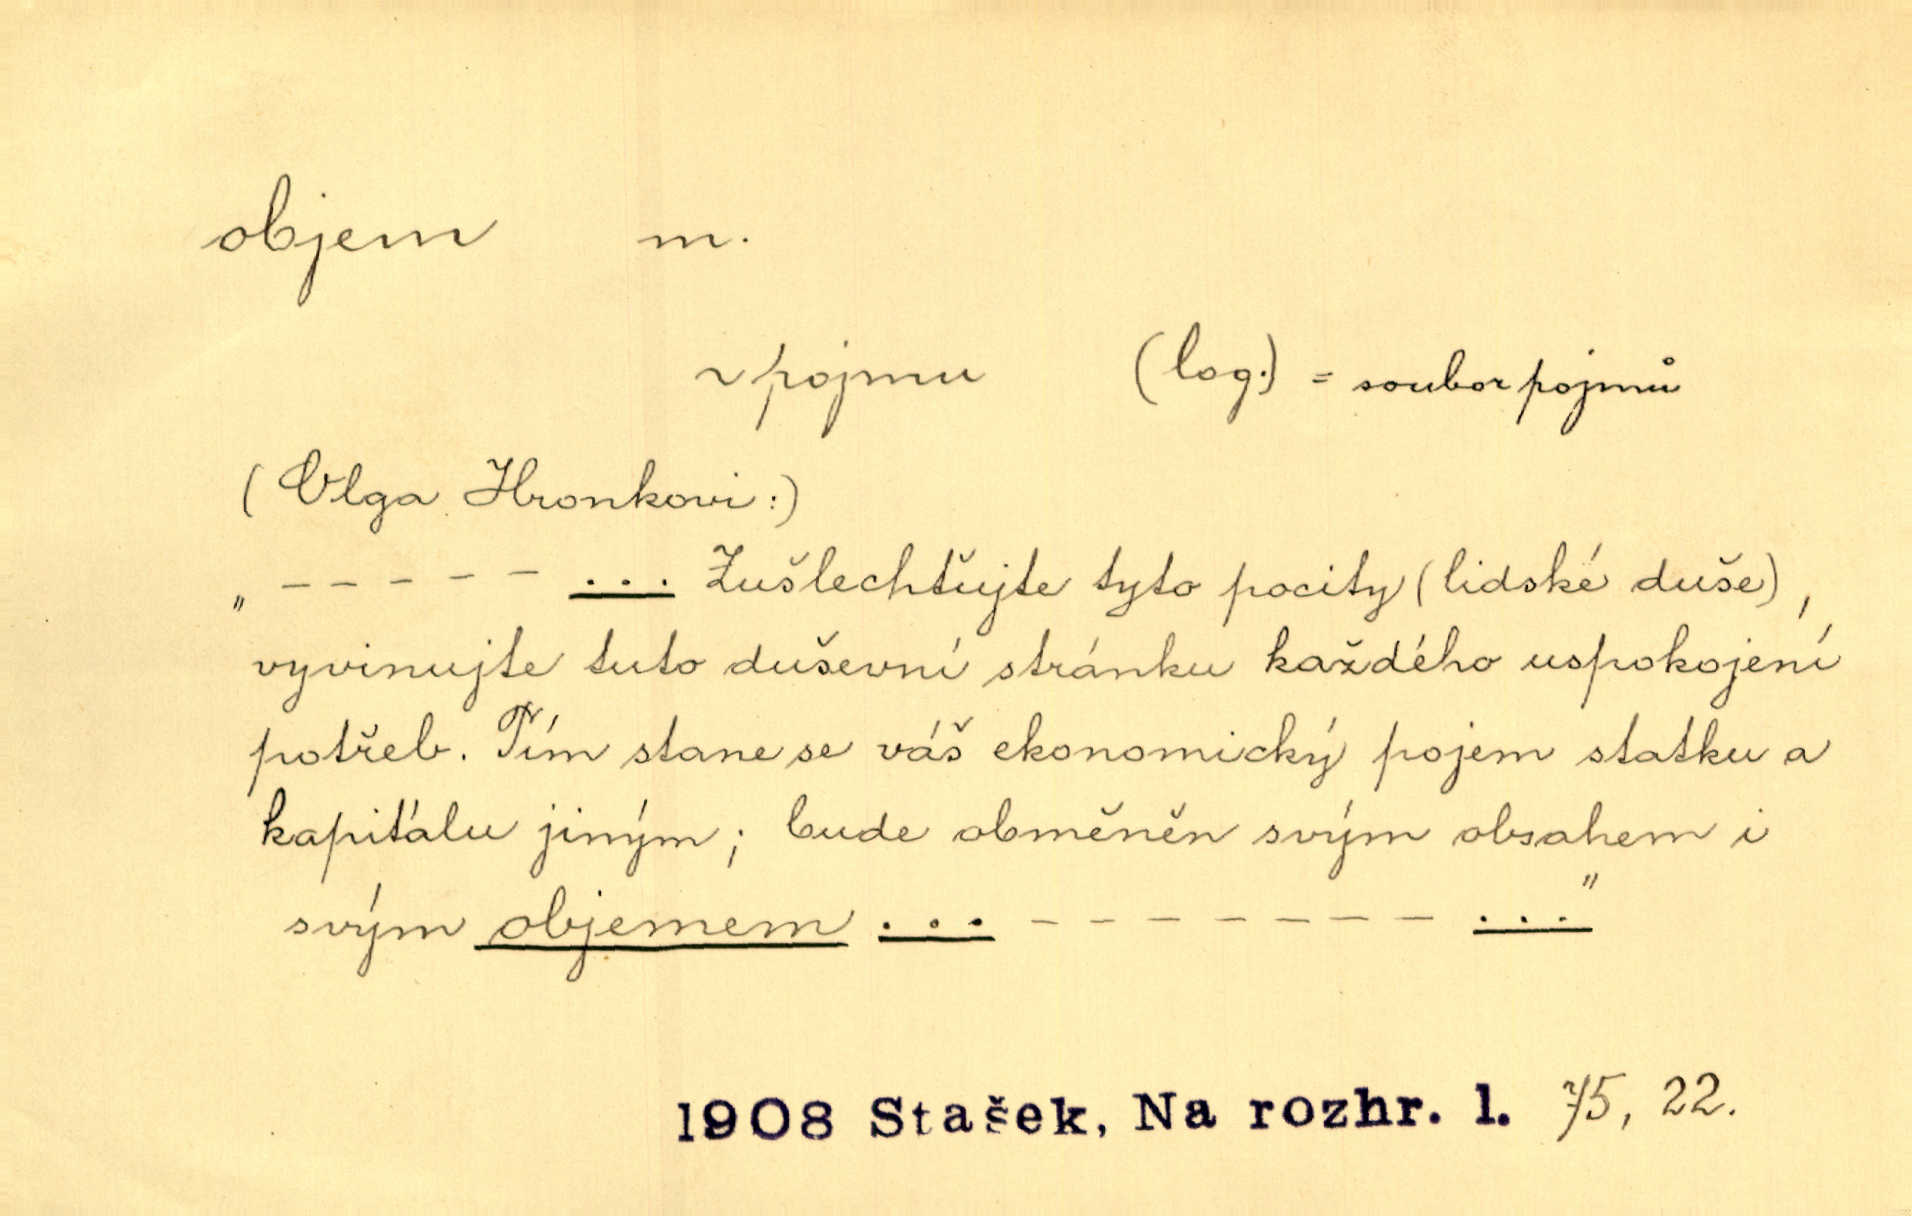 objem m.
~ pojmu (log.) = soubor pojmů
(Olga Hronkovi:)
„ – – – – – ... Zušlechťujte tyto pocity (lidské duše),
vyvinujte tuto duševní stránku každého uspokojení
potřeb. Tím stane se váš ekonomický pojem statku a
kapitálu jiným; bude obměněn svým obsahem i
svým objemem ... – – – – – – – – ..."
1908 Stašek, Na rozhr. 1. 75, 22.